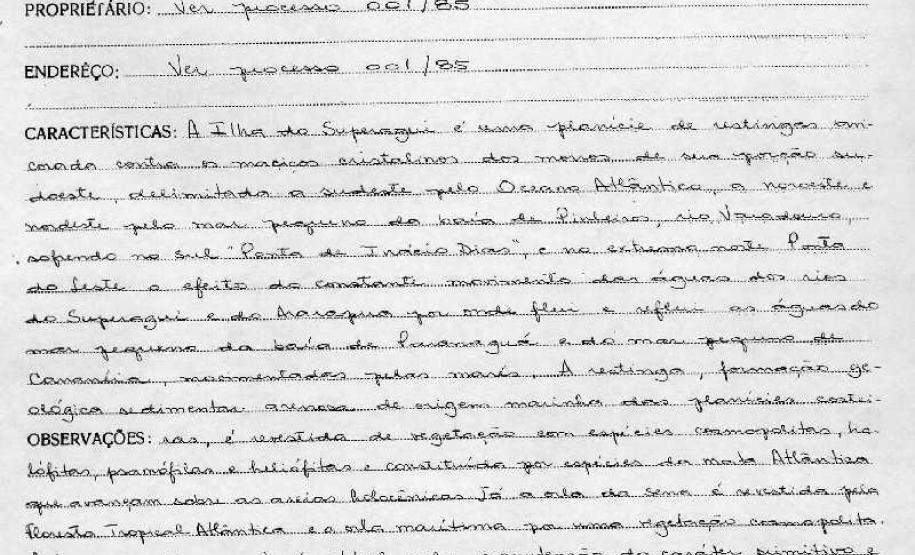 PROPRIETÁRIO: Ver processo 001/85
ENDEREÇO: Ver processo 001/85
CARACTERÍSTICAS: A Ilha do Superagui é uma planície de restingas an-
corada contra os maciços cristalinos dos morros de sua porção su-
doeste, delimitada a sudeste pelo Oceano Atlântico, a noroeste e
nordeste pelo mar pequeno da baía de Pinheiros, rio Varadouro,
sofrendo no sul "Ponta de Inácio Dias", e no extremo norte Ponta
do Leste o efeito do constante movimento das águas dos rios
do Superagui e do Ararapira por onde flui e reflui as águas do
mar pequeno da baía de Paranaguá e do mar pequeno de
Cananéia, movimentadas pelas marés. A restinga, formação ge-
ológica sedimentar arenosa de origem marinha das planícies costei-
OBSERVAÇÕES: ras, é revestida de vegetação com espécies cosmopolitas, ha-
lófitas, psamófilas e heliófitas e constituída por espécies da mata Atlântica
que avançam sobre as areias holocênicas. Já a orla da serra é revestida pela
Floresta Tropical Atlântica e a orla marítima por uma vegetação cosmopolita.
do caráter primitivo e